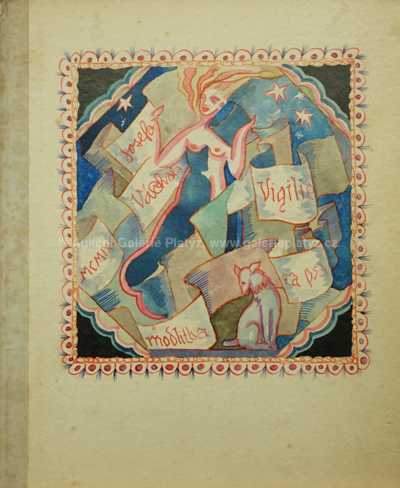 Josefa
Váchala
Vigilie
MCMIX
a ps
modlitba
Aukční Galerie Platýz, www.galerieplatyz.cz